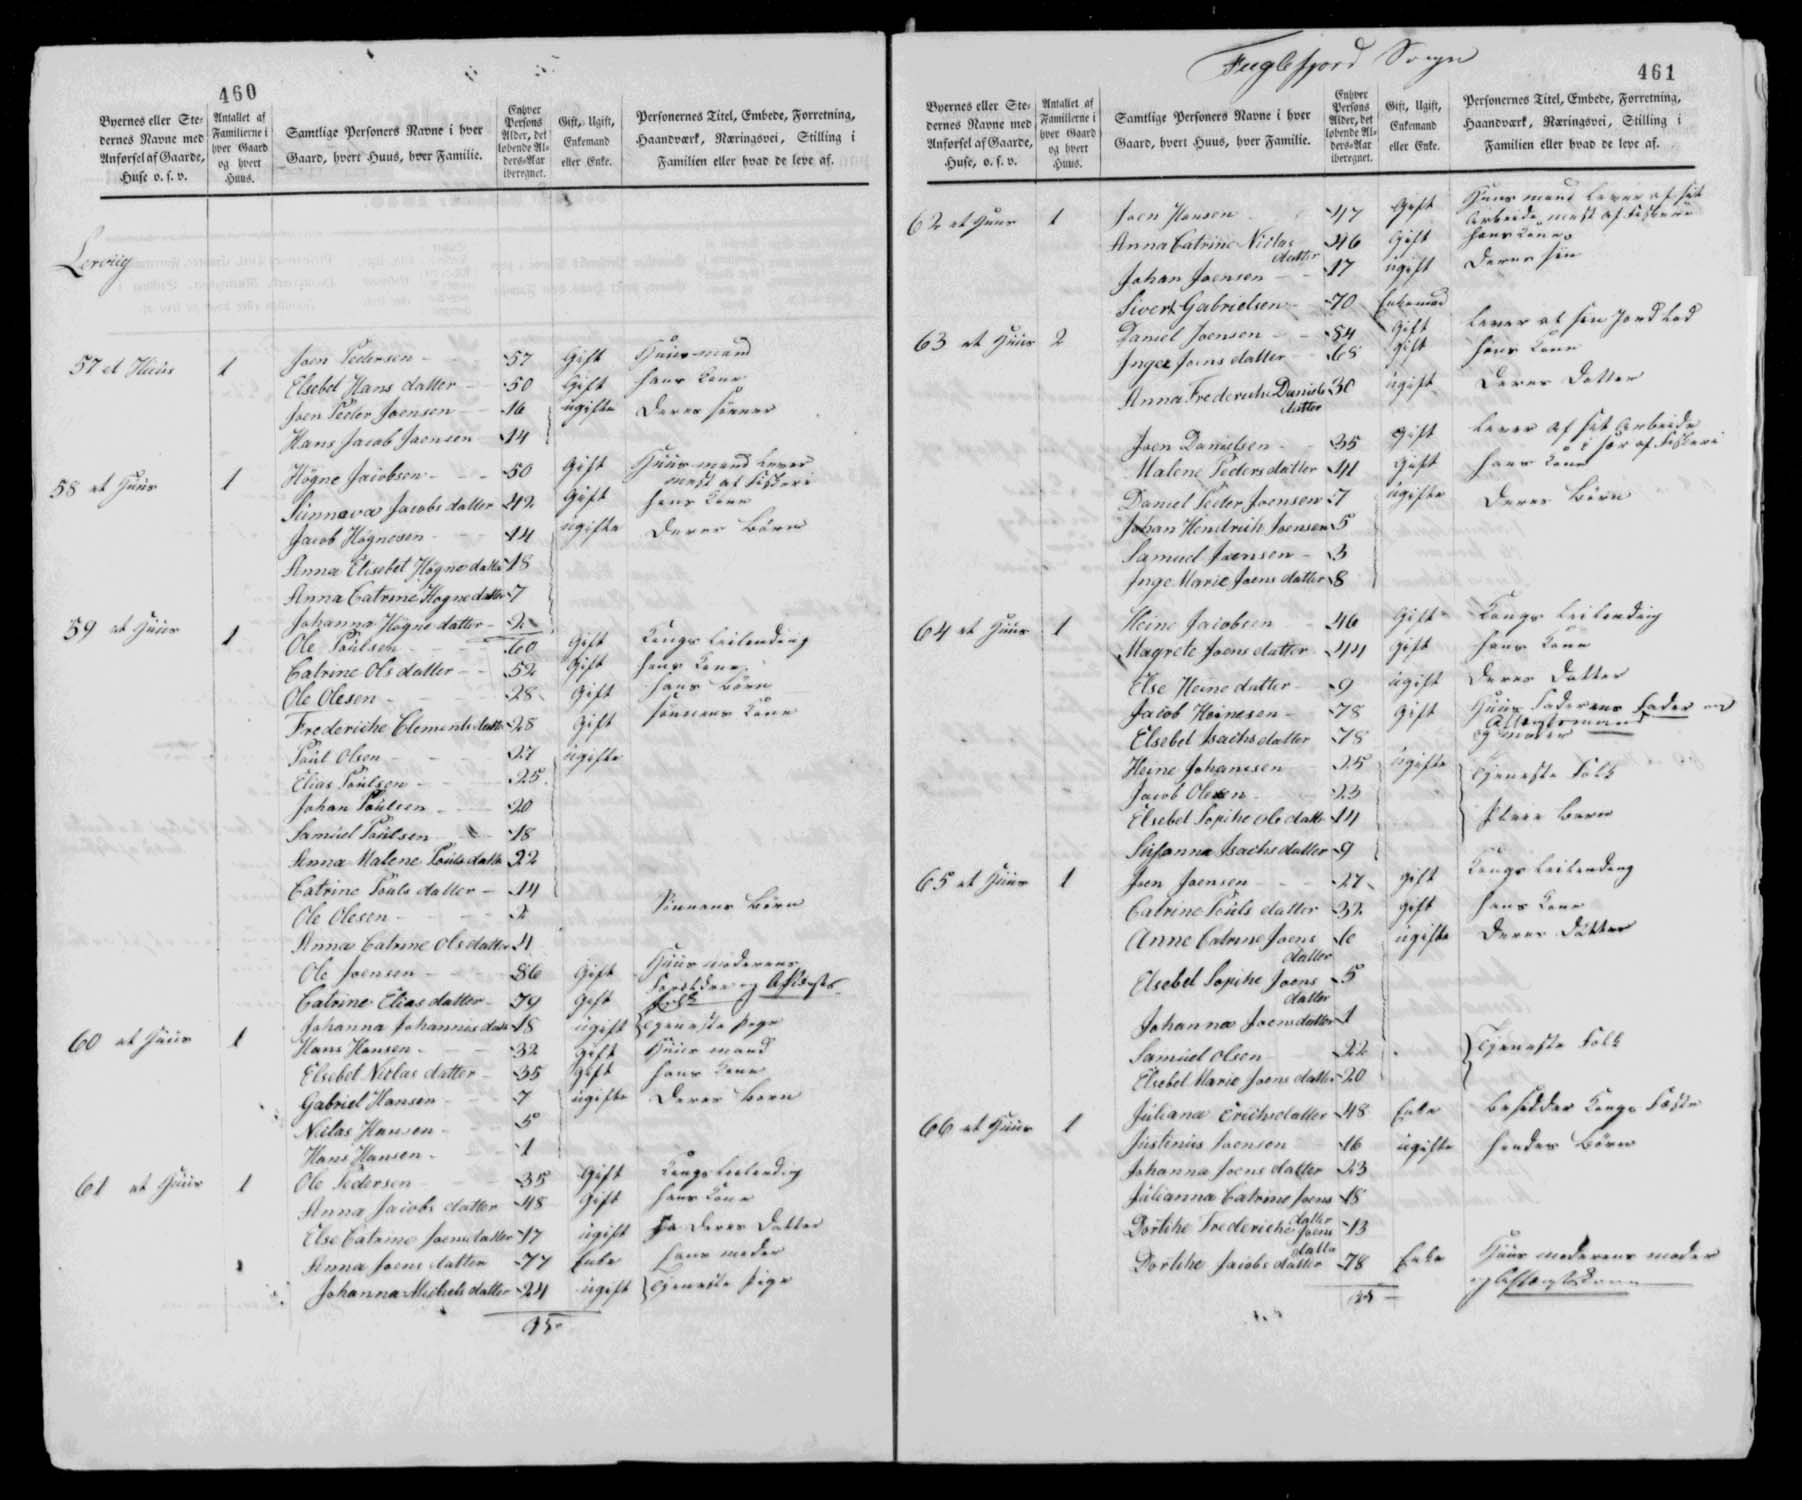 460
Byernes eller Ste-
dernes Navne med
Anførsel af Gaarde,
Huse o. s. v.
Antallet af
Familierne i
hver Gaard
og hvert
Huus.
Samtlige Personers Navne i hver
Gaard, hvert Huus, hver Familie.
Enhver
Persons
Alder, det
løbende Al-
ders-Aar
iberegnet.
Gift, Ugift,
Enkemand
eller Enke.
Personernes Titel, Embede, Forretning,
Haandværk, Næringsvei, Stilling i
Familien eller hvad de leve af.
Lerviig
57 et Huus 1 Joen Pedersen 57 Gift Huusmand
Elsebet Hans datter 50 Gift hans Kone
Joen Peder Joensen 16 ugifte Deres sönner
Hans Jacob Joensen 14
58 et Huus 1 Högne Jacobsen 50 Gift Huusmand Lever
mest af Fiskeri
Sünneva Jacobs datter 42 Gift hans Kone
Jacob Högnesen 14 ugifte Deres Börn
Anna Elisebet Högne datter 18
Anna Catrine Högne datter 7
Johanna Högne datter 2
59 et Huus 1 Ole Poulsen 60 Gift Kongs Leilending
Catrine Ols datter 52 Gift hans Kone
Ole Olesen 28 Gift hans Börn
Frederiche Clements datter 28 Gift sönnens Kone
Poul Olsen 27 ugifte
Elias Poulsen 25
Johan Poulsen 20
Samuel Poulsen 18
Anna Malene Pouls datter 22
Catrine Pouls datter 14
Ole Olesen 2 Sönnens Börn
Anna Catrine Olsdatter 4
Ole Joensen 86 Gift Huusmoderens
Catrine Elias datter 79 Gift Forældre og Aftægts
folk
Johanna Johannes datter 18 ugift Tjeneste pige
60 et Huus 1 Hans Hansen 32 Gift Huusmand
Elsebet Niclas datter 35 Gift hans Kone
Gabriel Hansen 7 ugifte Deres Börn
Niclas Hansen 5
Hans Hansen 1
61 et Huus 1 Ole Pedersen 35 Gift Kongs Leilending
Anna Jacobs datter 48 Gift hans Kone
Else Catrine Joensdatter 17 ugift Deres Datter
Anna Joens datter 77 Enke hans moder
Johanna Michels datter 24 ugift Tjeneste Pige
Fuglefjord Sogn
461
Byernes eller Ste-
dernes Navne med
Anførsel af Gaarde,
Huse, o. s. v.
Antallet af
Familierne i
hver Gaard
og hvert
Huus.
Samtlige Personers Navne i hver
Gaard, hvert Huus, hver Familie.
Enhver
Persons
Alder, det
løbende Al-
ders-Aar
iberegnet.
Gift, Ugift,
Enkemand
eller Enke.
Personernes Titel, Embede, Forretning,
Haandværk, Næringsvei, Stilling i
Familien eller hvad de leve af.
62 et Huus 1 Joen Hansen 47 Gift Huusmand Lever af sit
Arbeide mest af Fiskerie
Anna Catrine Niclas
datter 46 Gift hans Kone
Johan Joensen 17 ugift Deres sön
Sivert Gabrielsen 70 Enkemand
63 et Huus 2 Daniel Joensen 84 Gift Lever af sin Jord Lod
Inger Joens datter 68 Gift hans Kone
Anna Frederiche Daniels
datter 30 ugift Deres Datter
Joen Danielsen 35 Gift Lever af sit Arbeide
i sær af Fiskeri
Malene Peders datter 41 Gift hans Kone
Daniel Peder Joensen 7 ugifte Deres Börn
Johan Hendrich Joensen 5
Samuel Joensen 3
Inge Marie Joens datter 8
64 et Huus 1 Heine Jacobsen 46 Gift Kongs Leilending
Magrete Joens datter 44 Gift hans Kone
Else Heine datter 9 ugift Deres Datter
Jacob Heinesen 78 Gift Huus Faderens Fader
Aftægtsmand
Elsebet Isachs datter 78 og moder
Heine Johannesen 25 ugifte Tjeneste Folk
Jacob Olesen 23
Elsebet Sophie Ols datter 14 Pleie Bern
Susanna Isachs datter 9
65 et Huus 1 Joen Joensen 27 Gift Kongs Leilending
Catrine Pouls datter 32 Gift hans Kone
Anne Catrine Joens
datter 6 ugifte Deres Döttre
Elsebet Sophie Joens
datter 5
Johanna Joensdatter 1
Samuel Olsen 22 Tjeneste Folk
Elsebet Marie Joens datter 20
66 et Huus 1 Juliana Erichsdatter 48 Enke besidder Kongs Fæste
Justinus Joensen 16 ugifte hendes Börn
Johanna Joens datter 23
Julianna Catrine Joens
datter 18
Dorthe Frederiche Joens
datter 13
Dorthe Jacobs datter 78 Enke Huus moderens moder